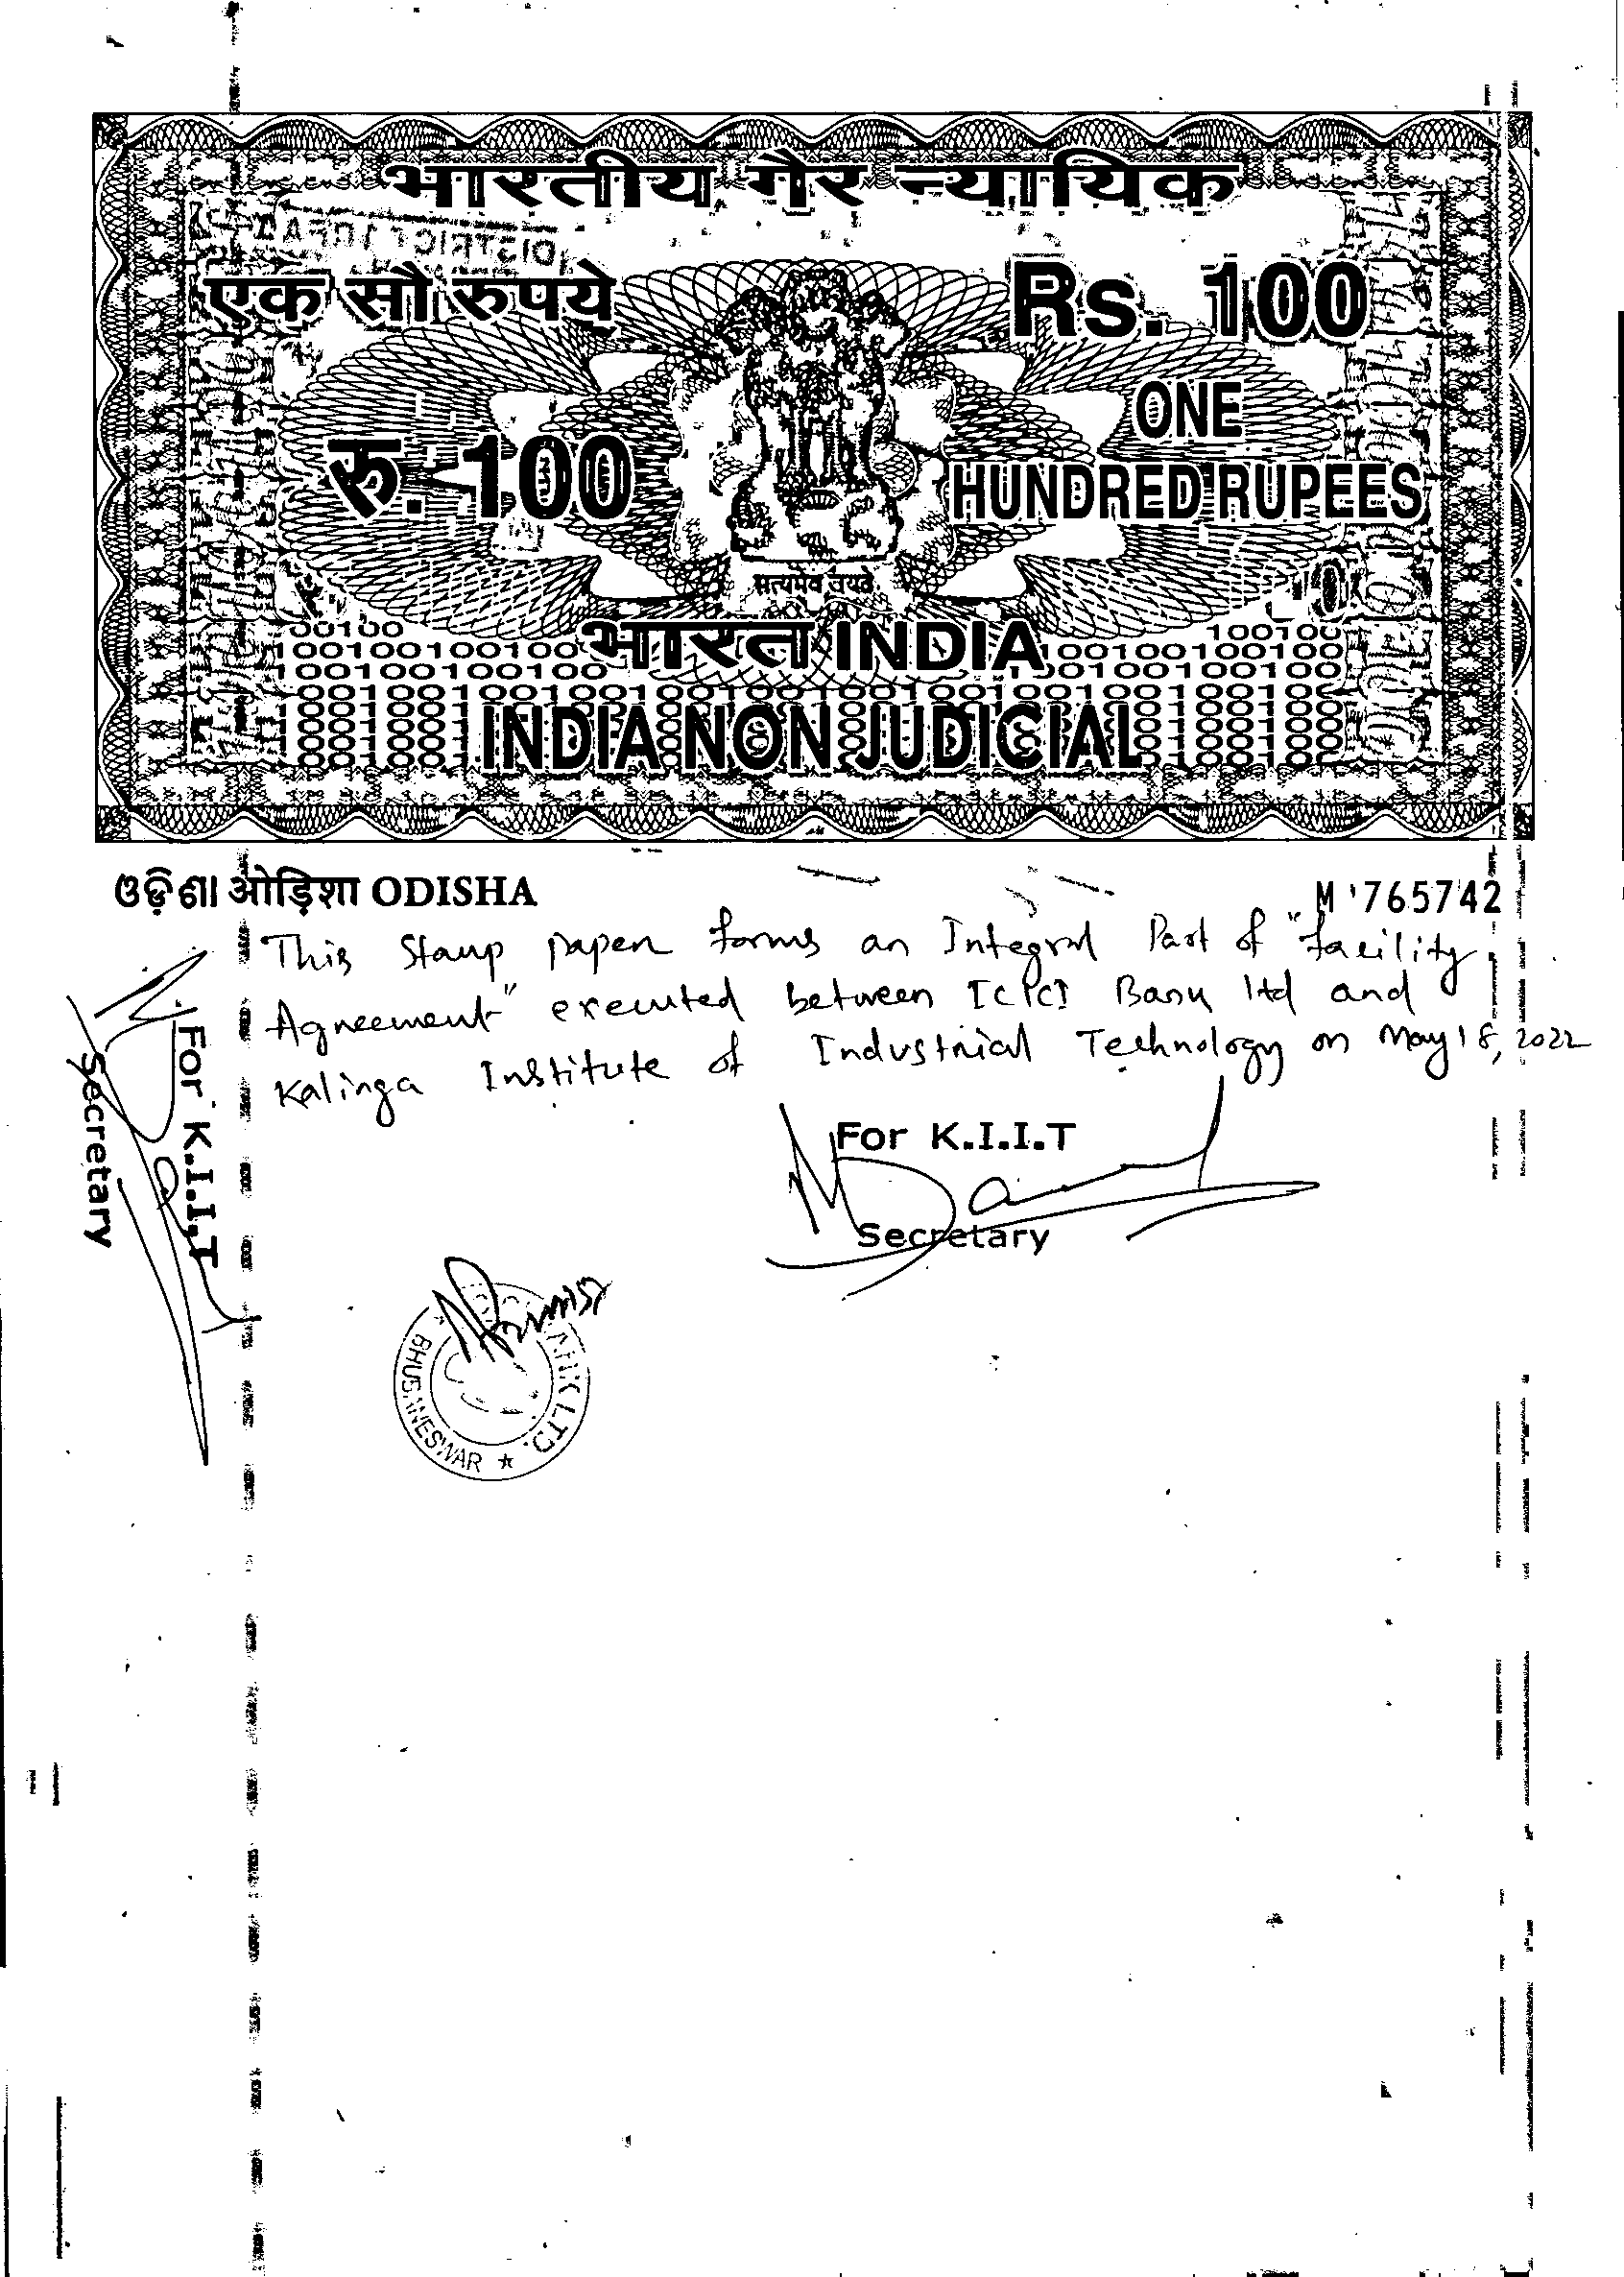 भारतीय गैर न्यायिक
एक सौ रुपये
Rs. 100
रु. 100
ONE
HUNDRED RUPEES
सत्यमेव जयते
भारत INDIA
INDIA NON JUDICIAL
ଓଡ଼ିଶା ओड़िशा ODISHA
M 765742
This Stamp paper forms an Integral Part of "facility
Agreement" executed between ICICI Bank ltd and
Kalinga Institute of Industrial Technology on May 18, 2022
For K.I.I.T
Secretary
For K.I.I.T
Secretary
BHUBANESWAR ★ LTD.